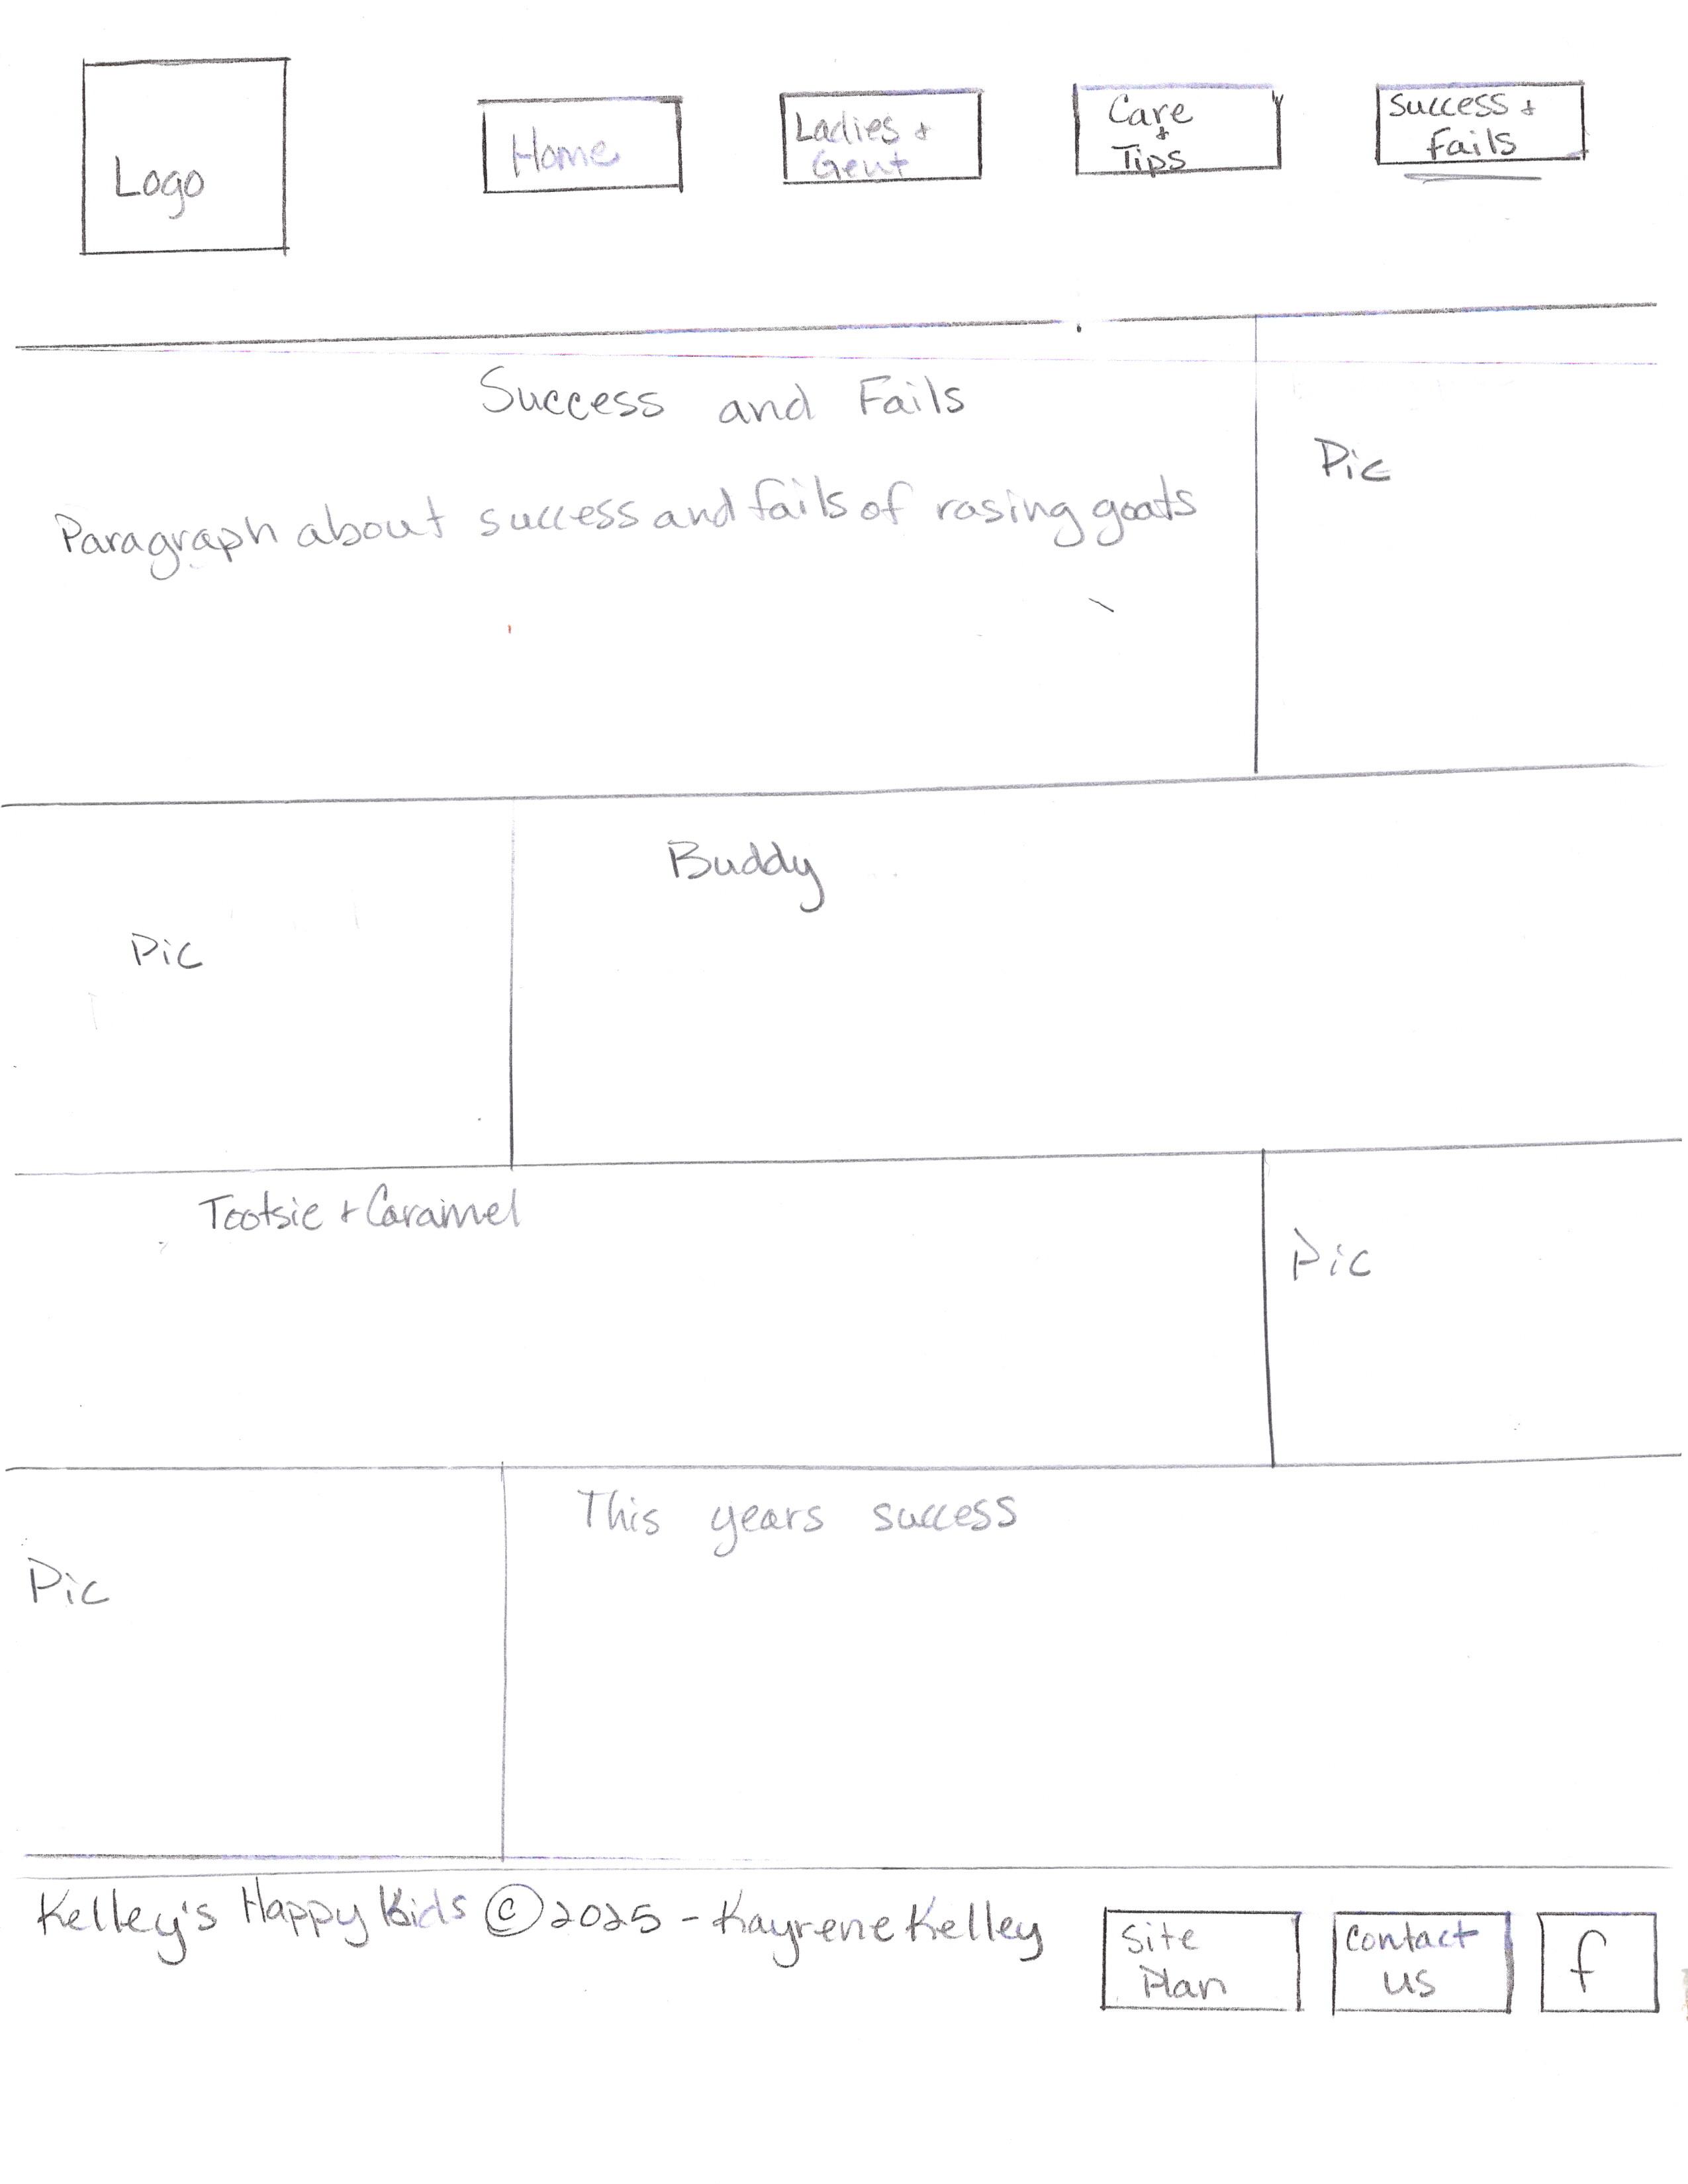 Logo
Home
Ladies +
Gent
Care
+
Tips
Success +
Fails
Success and Fails
Paragraph about success and fails of rasing goats
Pic
Pic
Buddy
Tootsie + Caramel
Pic
Pic
This years success
Kelley's Happy Kids © 2025 - Kayrene Kelley
Site
Plan
Contact
us
f